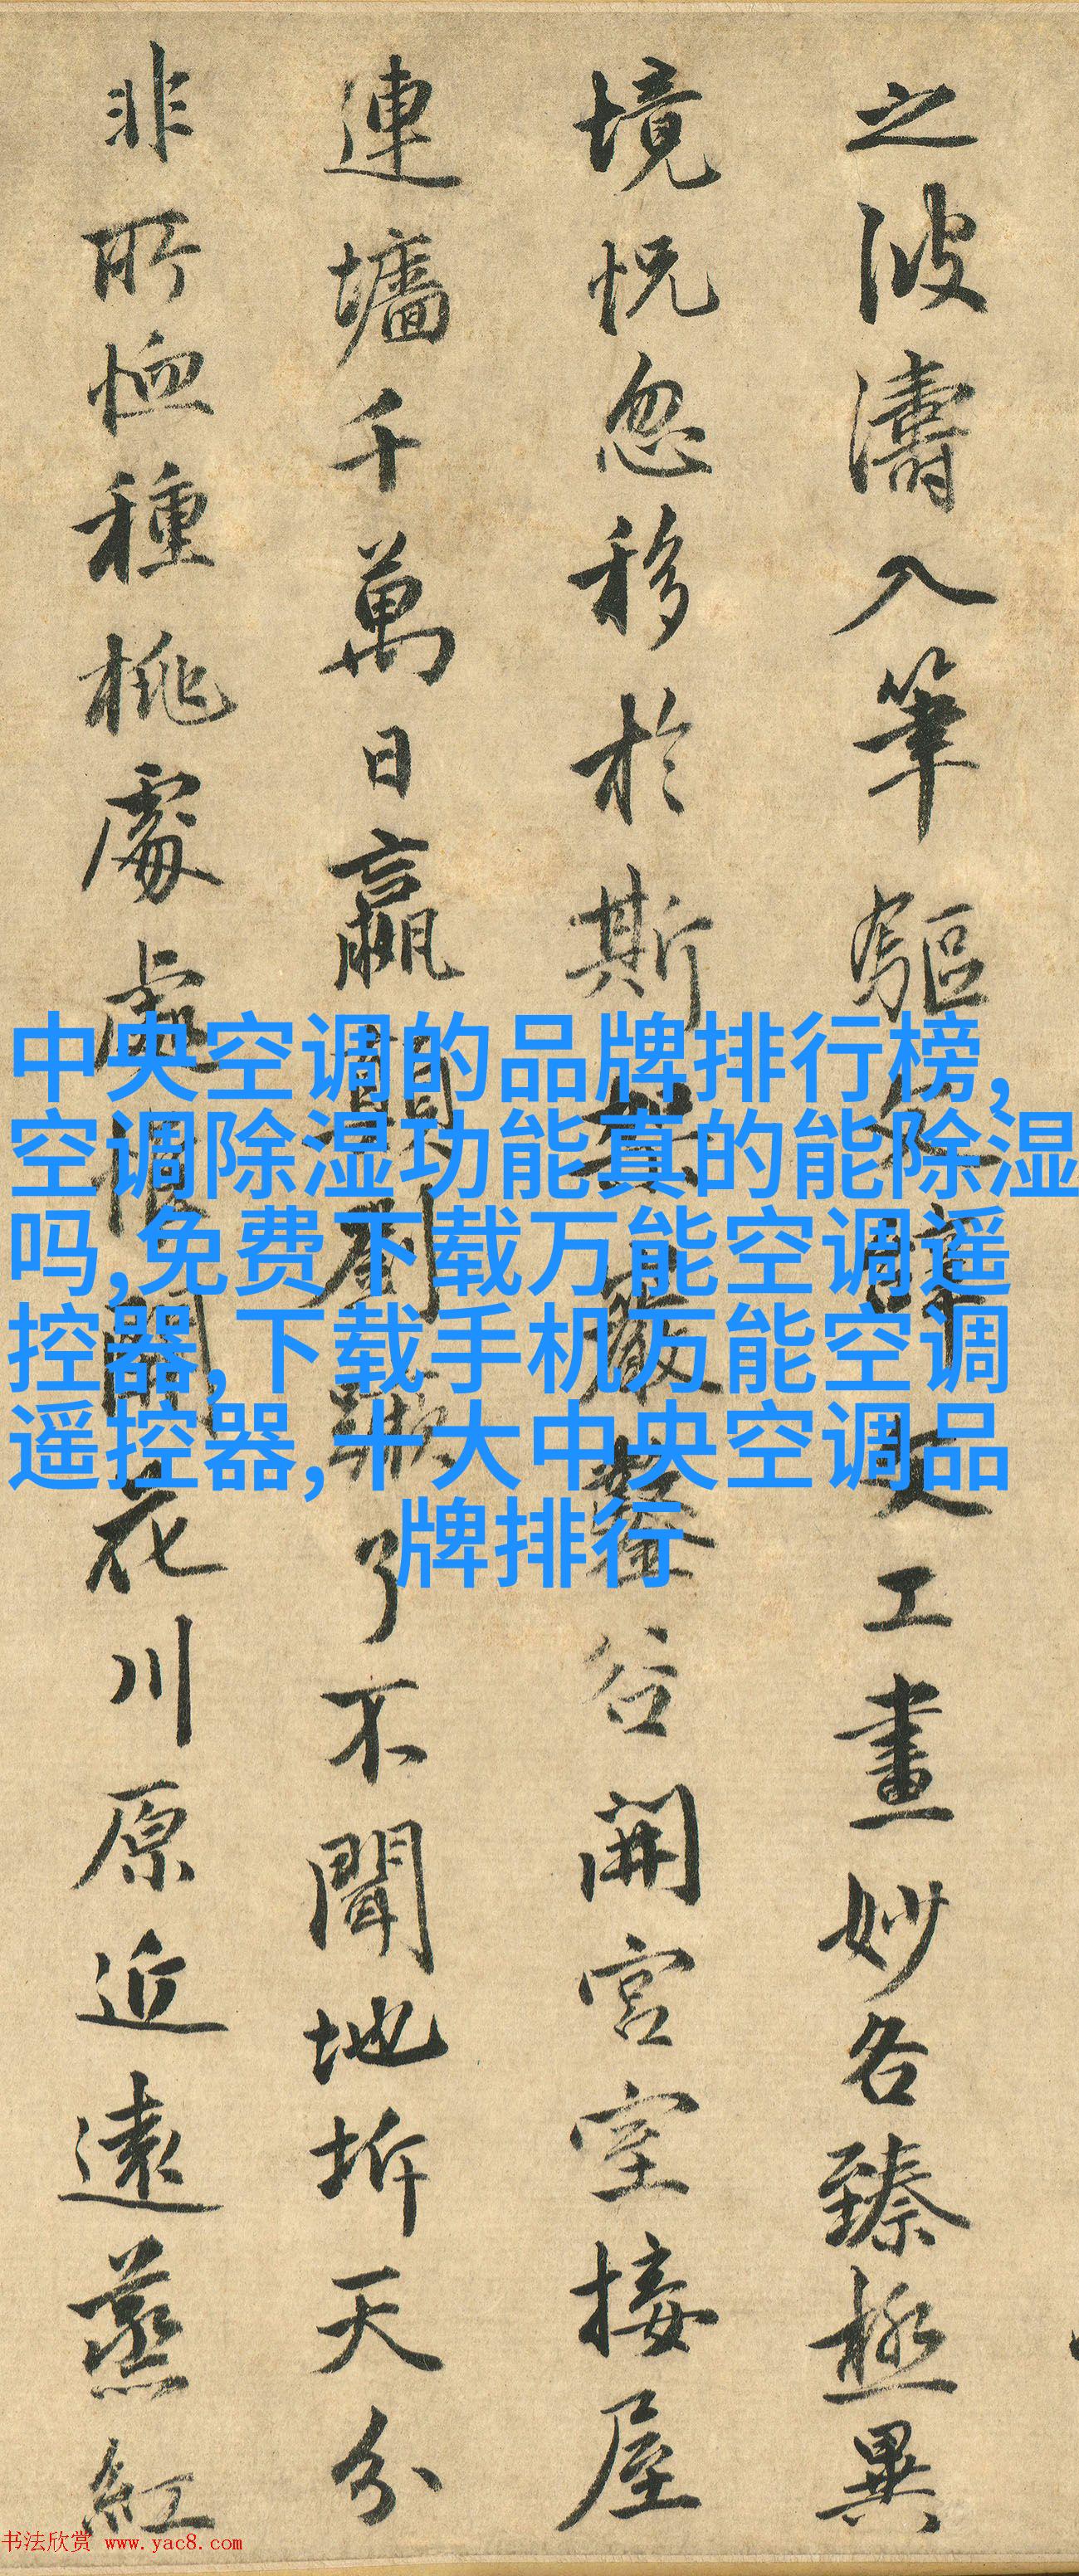 之波濤入筆驅文辭文工畫妙各臻極異
境怳忽移於斯架巖鑿谷開宮室接屋
連墻千萬日嬴顛劉蹶了不聞地坼天分
非所恤種桃處處惟開花川原近遠蒸紅
中央空调的品牌排行榜,
空调除湿功能真的能除湿
吗,免费下载万能空调遥
控器,下载手机万能空调
遥控器,十大中央空调品
牌排行
书法欣赏 www.yac8.com